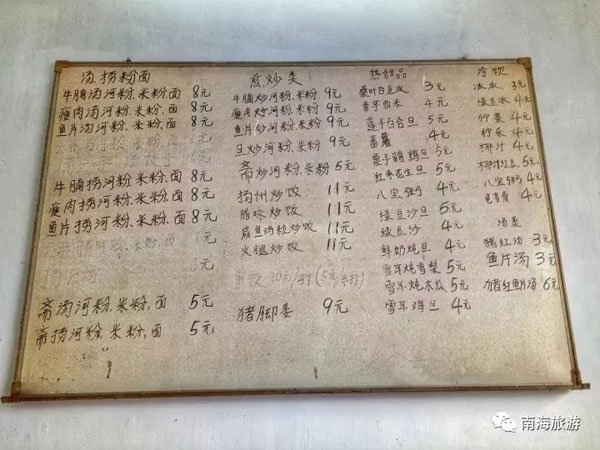 汤.捞粉面
牛腩汤河粉.米粉.面 8元
瘦肉汤河粉.米粉.面 8元
鱼片汤河粉.米粉.面 8元
牛腩捞河粉.米粉.面 8元
瘦肉捞河粉.米粉.面 8元
鱼片捞河粉.米粉.面 8元
4元
元
斋汤河粉.米粉.面 5元
斋捞河粉.米粉.面 5元
煎炒类
牛腩炒河粉.米粉 9元
瘦肉炒河粉.米粉 9元
鱼片炒河粉.米粉 9元
旦炒河粉.米粉 9元
斋炒河粉.米粉 5元
扬州炒饭 11元
腊味炒饭 11元
咸鱼鸡粒炒饭 11元
火腿炒饭 11元
10元/打(5元/半打)
猪脚姜 9元
热甜品
桑叶白豆冰 3元
香芋西米 4元
莲子百合旦 5元
番薯 4元
栗子鹌鹑旦 5元
红枣花生旦 5元
八宝粥 4元
绿豆沙旦 5元
绿豆沙 4元
鲜奶炖旦 4元
雪耳炖雪梨 5元
雪耳炖木瓜 5元
雪耳鸡旦 4元
冷饮
冰水 3元
绿豆冰 4元
柠蜜 4元
柠乐 4元
椰汁 4元
椰汁红豆 5元
八宝粥 4元
龟苓膏 4元
汤类
猪红汤 3元
鱼片汤 3元
猪红鱼片汤 6元
南海旅游